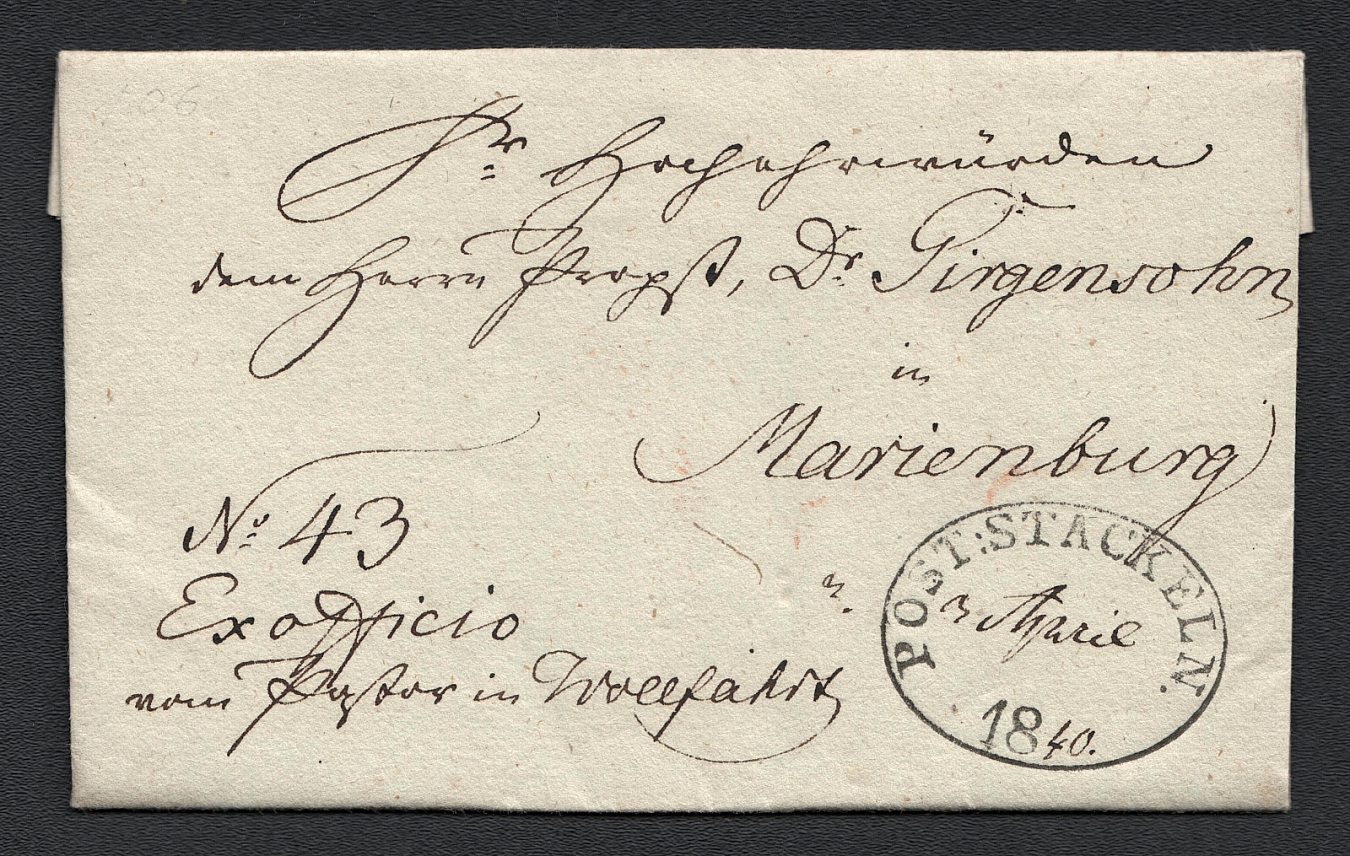 Sr Hochehrwürden
dem Herrn Propst, Dr. Girgensohn
in
Marienburg
No. 43
Ex officio
vom Pastor in Wollfahrt
POST: STACKELN.
3 April
1840.